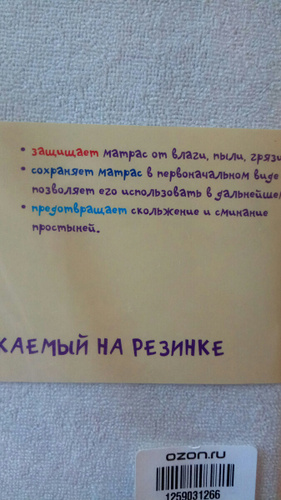 • защищает матрас от влаги, пыли, грязи
• сохраняет матрас в первоначальном виде
позволяет его использовать в дальнейшем
• предотвращает скольжение и сминание
простыней.
КАЕМЫЙ НА РЕЗИНКЕ
ozon.ru
1259031266